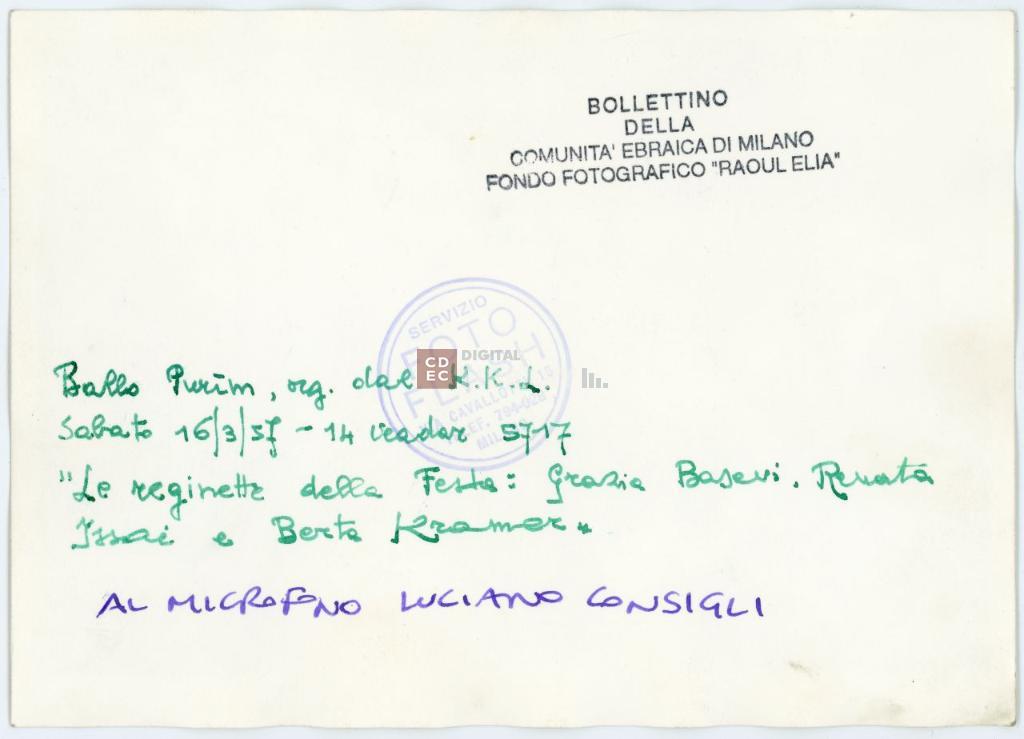 BOLLETTINO
DELLA
COMUNITA' EBRAICA DI MILANO
FONDO FOTOGRAFICO "RAOUL ELIA"
SERVIZIO
FOTO
FLASH
VIA CAVALLOTTI 15
TELEF. 794-028
MILANO
CD
EC
DIGITAL
Ballo Purim, org. dal K.K.L.
Sabato 16/3/57 - 14 veadar 5717
"Le reginette della Festa: Grazia Basevi. Renata
Issai e Berta Kramer"
AL MICROFONO LUCIANO CONSIGLI